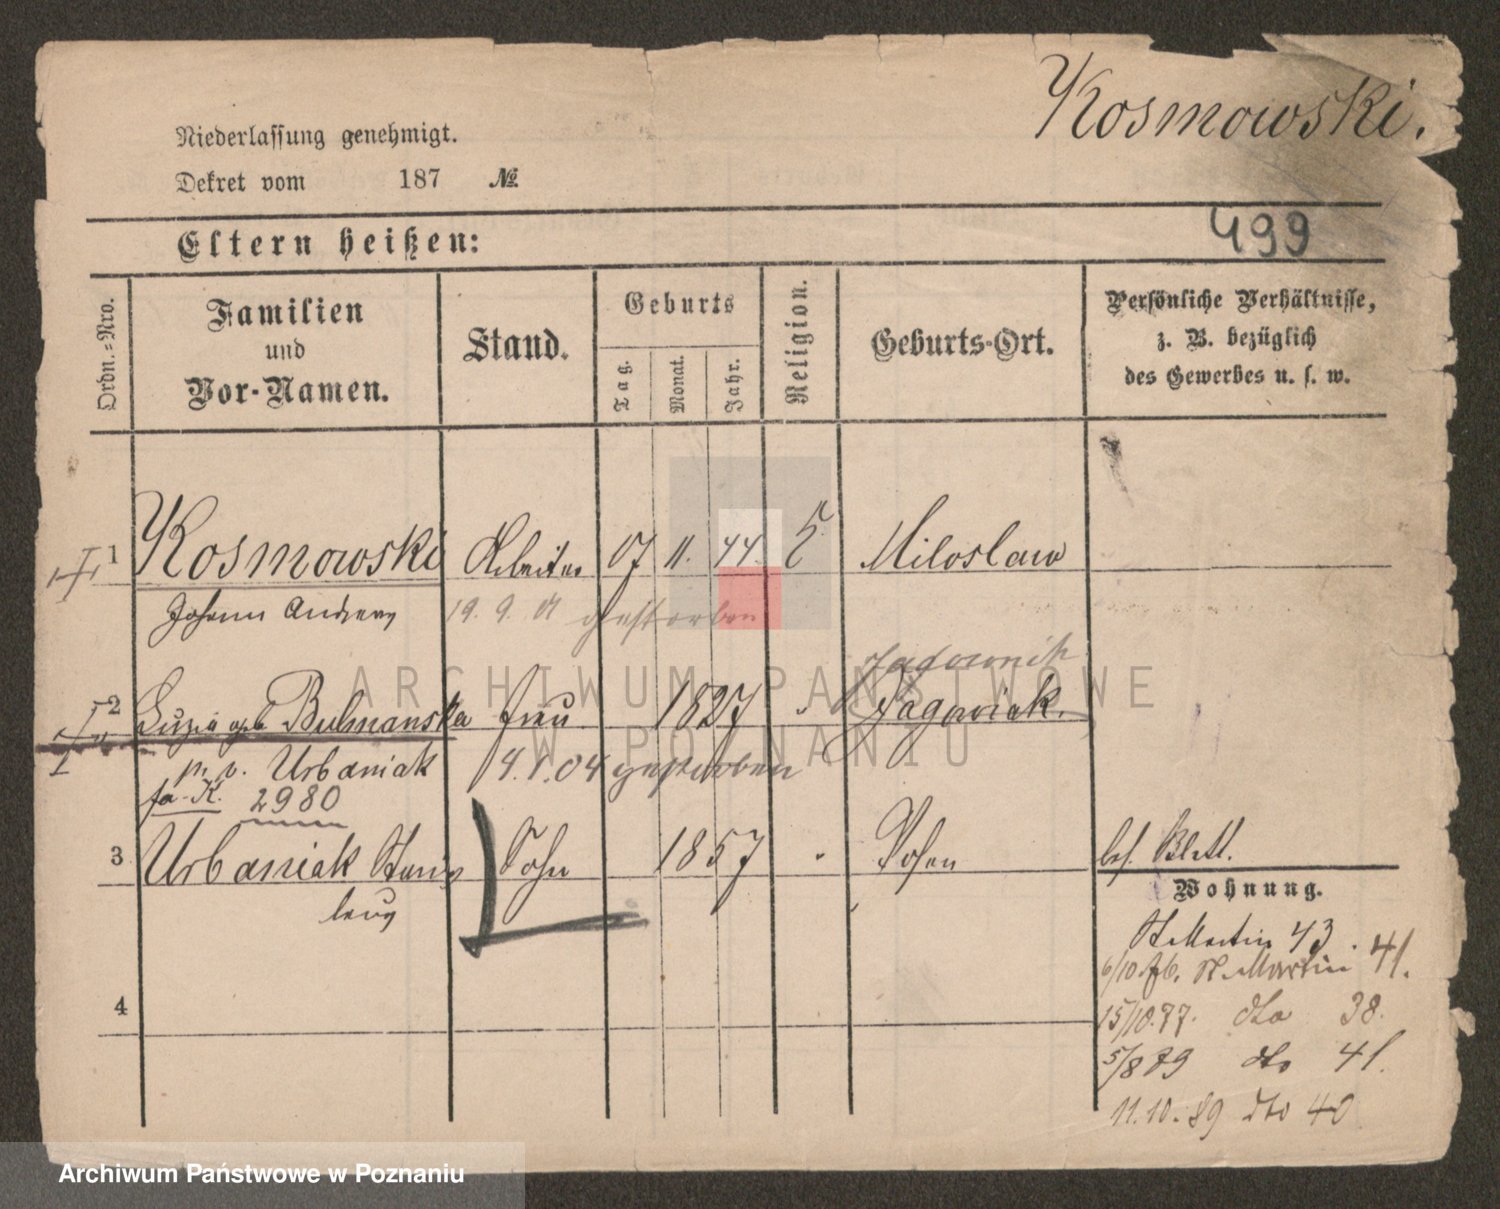 Kosmowski.
Niederlassung genehmigt.
Dekret vom 187 №
499
Eltern heißen:
Ordn.=Nro.
Familien
und
Vor-Namen.
Stand.
Geburts
Tag.
Monat.
Jahr.
Religion.
Geburts-Ort.
Persönliche Verhältnisse,
z. B. bezüglich
des Gewerbes u. s. w.
1 Kosmowski Arbeiter 07 11. 44 Miloslaw
Johann Andreas 19. 9. 01 gestorben
2 Luzia geb Bulmanska Frau 1827
p. v. Urbaniak 4.1.04 gestorben
fa. K. 2980
3 Urbaniak Stanis Sohn 1857 Posen bes. Blatt.
laus
Wohnung.
St. Martin 43.
6/10.76. St. Martin 41.
15/10.77. dto 38.
5/8 79 dto 41.
4
11.10.89 dto 40
ARCHIWUM PAŃSTWOWE
W POZNANIU
Archiwum Państwowe w Poznaniu